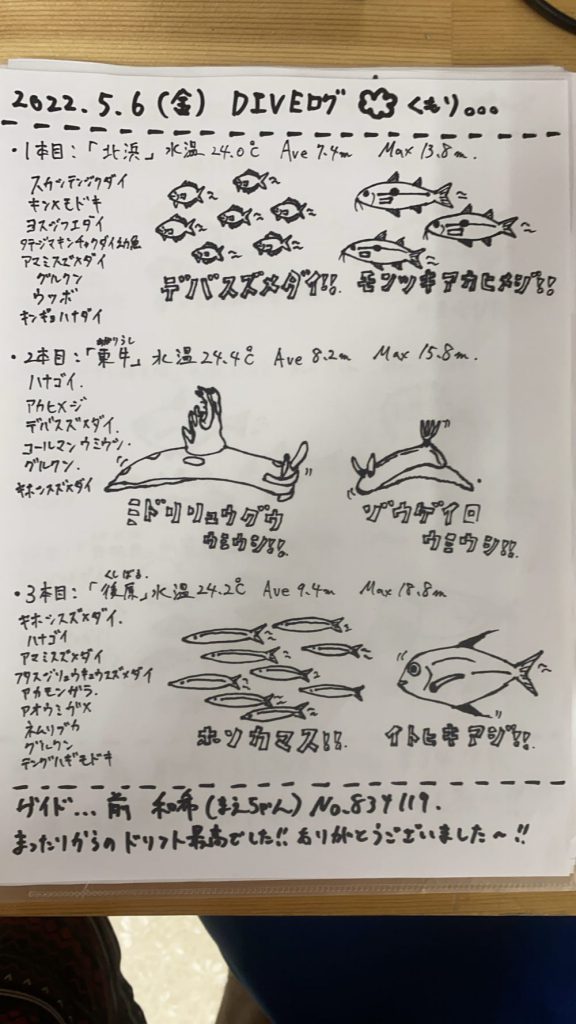 2022.5.6(金) DIVEログ くもり...
・1本目:「北浜」水温24.0℃ Ave 7.4m Max 13.8m.
スケシテンジクダイ
キンメモドキ
ヨスジフエダイ
タテジマキンチャクダイ幼魚
アマミスズメダイ
グルクン
ウツボ
キンギョハナダイ
デバスズメダイ!!
モンツキアカヒメジ!!
・2本目:「東牛」水温24.4℃ Ave 8.2m Max 15.8m.
ハナゴイ.
アカヒメジ
デバスズメダイ.
コールマンウミウシ.
グルクン.
キホシスズメダイ
ミドリリュウグウ
ウミウシ!!
ゾウゲイロ
ウミウシ!!
くしばる.
・3本目:「後原」水温24.2℃ Ave 9.4m Max 18.8m
キホシスズメダイ.
ハナゴイ
アマミスズメダイ
フタスジリュウキュウスズメダイ
アカモンガラ.
アオウミガメ
ネムリブカ
グルクン
テングハギモドキ
ホソカマス!!
イトヒキアジ!!
ガイド... 前 和希(まえちゃん) No.834119.
まったりからのドリフト最高でした!! ありがとうございました〜!!